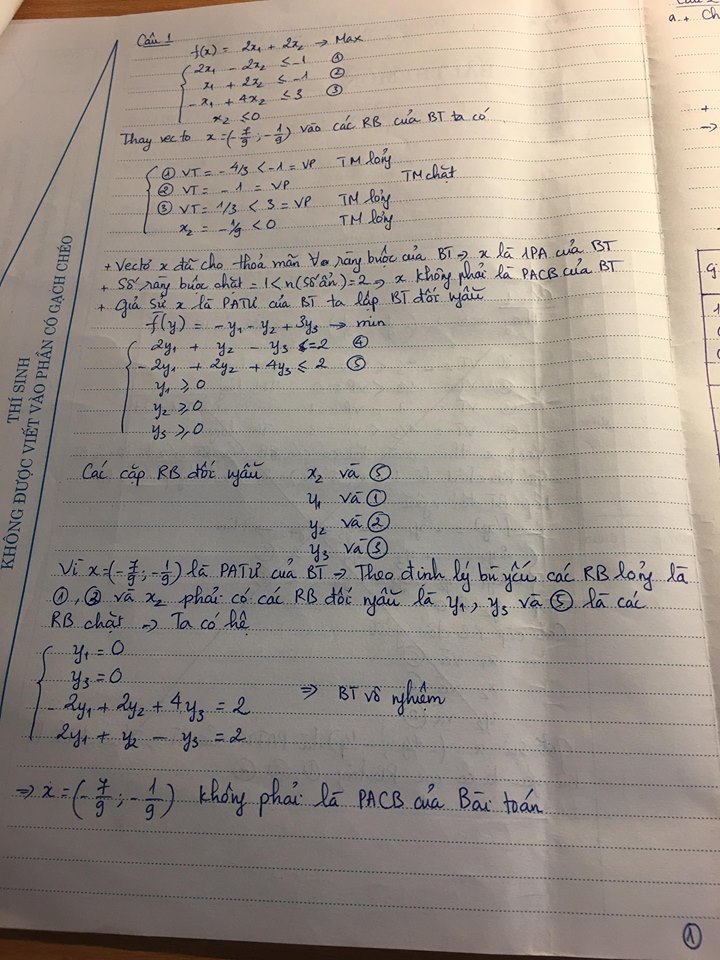 Câu 1
f(x) = 2x₁ + 2x₂ → Max
2x₁ - 2x₂ ≤ -1 ①
x₁ + 2x₂ ≤ -1 ②
-x₁ + 4x₂ ≤ 3 ③
x₂ ≤ 0
Thay vectơ x = (-7/9 ; -1/9) vào các RB của BT ta có
① VT = -4/3 < -1 = VP TM lỏng
② VT = -1 = VP TM chặt
③ VT = 1/3 < 3 = VP TM lỏng
x₂ = -1/9 < 0 TM lỏng
+ Vectơ x đã cho thoả mãn ∀ ràng buộc của BT → x là 1PA của BT
+ Số ràng buộc chặt = 1 < n (số ẩn) = 2 → x không phải là PACB của BT
+ Giả sử x là PATƯ của BT ta lập BT đối ngẫu
f̃(y) = -y₁ - y₂ + 3y₃ → min
2y₁ + y₂ - y₃ = 2 ④
-2y₁ + 2y₂ + 4y₃ ≤ 2 ⑤
y₁ ≥ 0
y₂ ≥ 0
y₃ ≥ 0
Các cặp RB đối ngẫu x₂ và ⑤
y₁ và ①
y₂ và ②
y₃ và ③
Vì x = (-7/9 ; -1/9) là PATƯ của BT → Theo định lý bù yếu các RB lỏng là
①, ③ và x₂ phải có các RB đối ngẫu là y₁, y₃ và ⑤ là các
RB chặt → Ta có hệ
y₁ = 0
y₃ = 0
-2y₁ + 2y₂ + 4y₃ = 2 ⇒ BT vô nghiệm
2y₁ + y₂ - y₃ = 2
⇒ x = (-7/9 ; -1/9) không phải là PACB của Bài toán
①
THÍ SINH
KHÔNG ĐƯỢC VIẾT VÀO PHẦN CÓ GẠCH CHÉO
a. + Ch